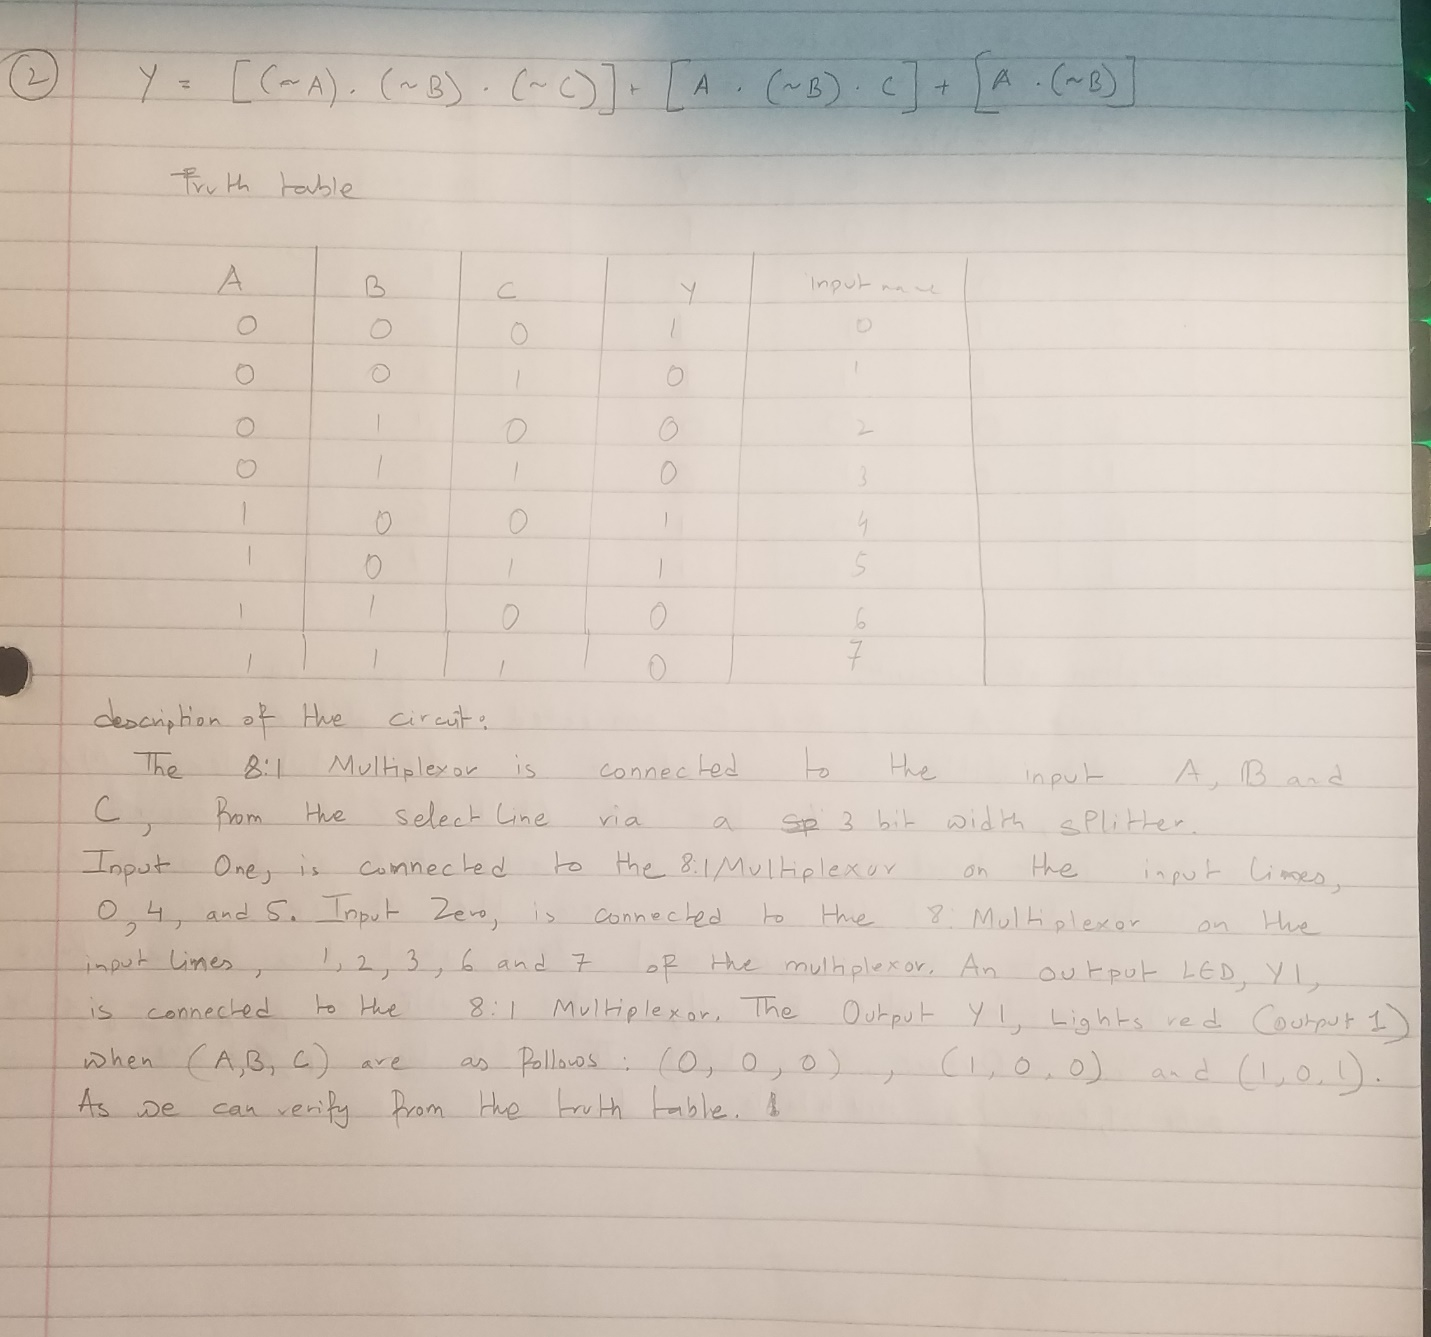 2 Y = [(~A) . (~B) . (~C)] + [A . (~B) . C] + [A . (~B)]
Truth table
A B C Y Input name
0 0 0 1 0
0 0 1 0 1
0 1 0 0 2
0 1 1 0 3
1 0 0 1 4
1 0 1 1 5
1 1 0 0 6
1 1 1 0 7
description of the circuit:
The 8:1 Multiplexor is connected to the input A, B and
C, from the select line via a 3 bit width splitter.
Input One, is connected to the 8:1 Multiplexor on the input lines,
0, 4, and 5. Input Zero, is connected to the 8: Multiplexor on the
input lines, 1, 2, 3, 6 and 7 of the multiplexor. An output LED, Y1,
is connected to the 8:1 Multiplexor. The Output Y1, Lights red (output 1)
when (A, B, C) are as follows: (0, 0, 0), (1, 0, 0) and (1, 0, 1).
As we can verify from the truth table.